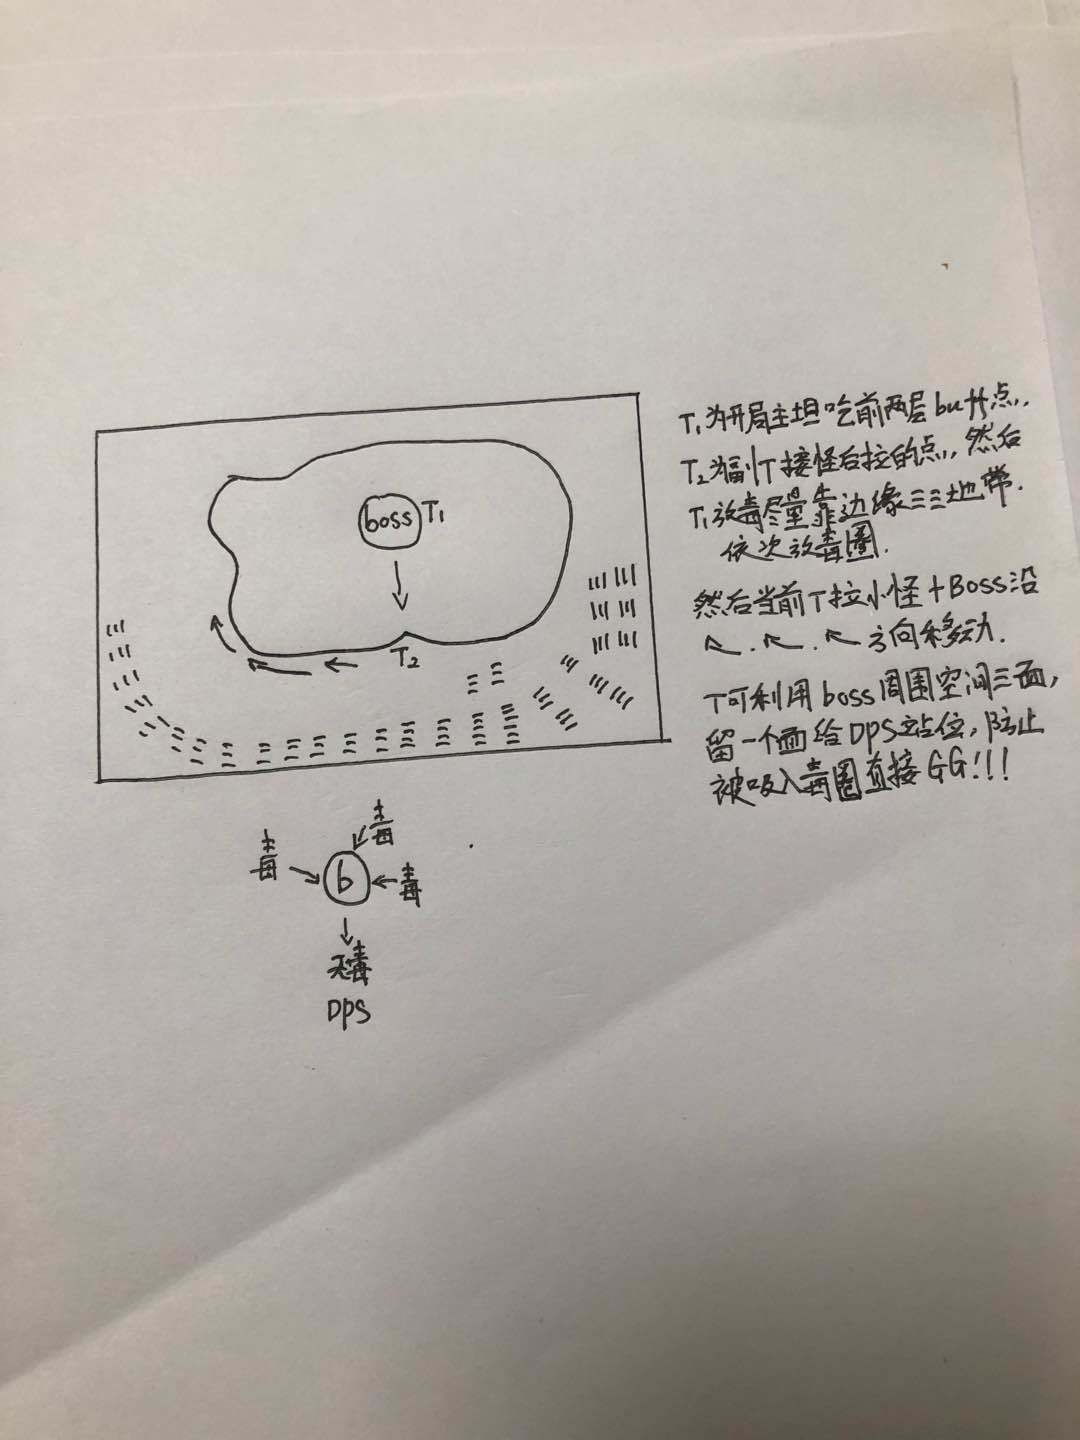 boss T1
T2
T1为开局主坦吃前两层buff点.
T2为副T接怪后拉的点,然后
T1放毒尽量靠边缘三三地带.
依次放毒圈.
然后当前T拉小怪+Boss沿
↖.↖.↖方向移动.
T可利用boss周围空间三面,
留一个面给DPS站位,防止
被吸入毒圈直接GG!!!
毒
毒
b
毒
无毒
DPS